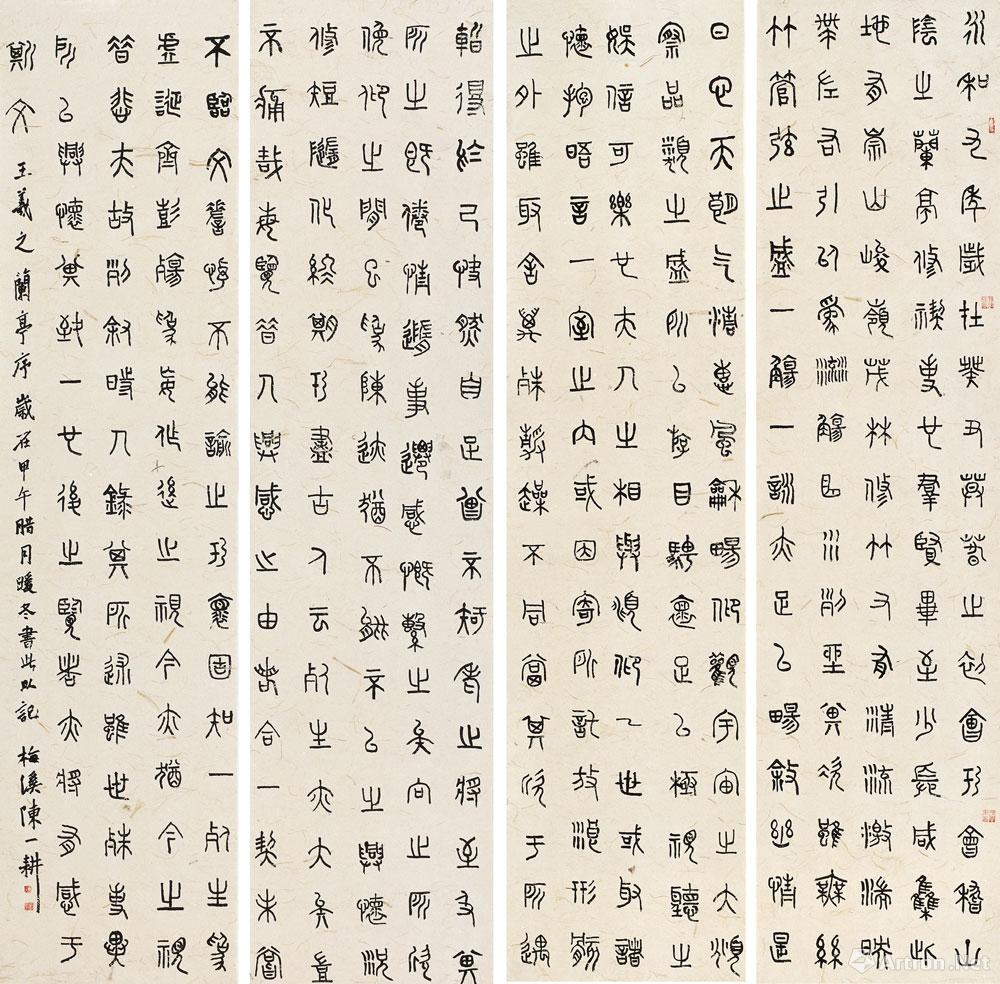 永和九年歲在癸丑暮春之初會于會稽山
陰之蘭亭修禊事也群賢畢至少長咸集此
地有崇山峻嶺茂林修竹又有清流激湍映
帶左右引以為流觴曲水列坐其次雖無絲
竹管弦之盛一觴一詠亦足以暢敘幽情是
日也天朗气清惠風龢暢仰觀宇宙之大俯
察品類之盛所以游目騁懷足以極視聽之
娛信可樂也夫人之相與俯仰一世或取諸
懷抱晤言一室之內或因寄所託放浪形骸
之外雖取舍萬殊靜躁不同當其欣于所遇
暫得於己快然自足曾不知老之將至及其
所之既倦情隨事遷感慨繫之矣向之所欣
俛仰之間以為陳迹猶不能不以之興懷況
修短隨化終期于盡古人云死生亦大矣豈
不痛哉每覽昔人興感之由若合一契未嘗
不臨文嗟悼不能諭之于懷固知一死生為
虛誕齊彭殤為妄作後之視今亦猶今之視
昔悲夫故列敘時人錄其所述雖世殊事異
所以興懷其致一也後之覽者亦將有感于
斯文 王羲之蘭亭序歲在甲午腊月暖冬書此以記 梅溪陳一耕
Artron.Net